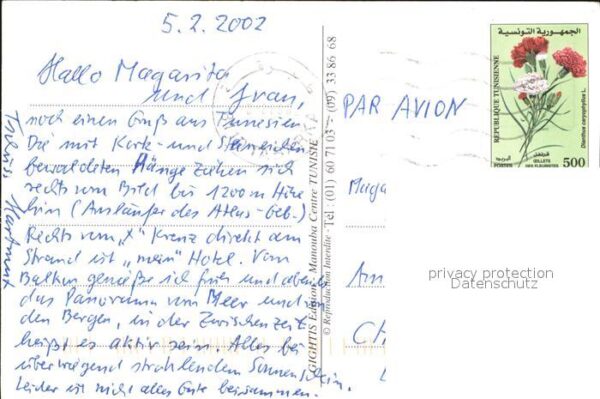 5.2.2002
Hallo Magarita
und Ivan,
noch einen Gruß aus Tunesien.
Die mit Kork- und Steineichen
bewaldeten Hänge ziehen sich
rechts vom Bild bis 1200 m Höhe
hin (Ausläufer des Atlas-Geb.)
Rechts vom "x" Kreuz direkt am
Strand ist "mein" Hotel. Vom
Balkon genieße ich früh und abends
das Panorama vom Meer und von
den Bergen, in der Zwischenzeit
heißt es aktiv sein. Alles bei
überwiegend strahlendem Sonnenschein.
Leider ist nicht alles Gute beisammen.
Hartmut
GIGHTIS Editions Manouba Centre TUNISIE
© Reproduction Interdite - Tel.: (01) 60 71 03 - (09) 33 86 68
PAR AVION
Maga
Am
Ch
الجمهورية التونسية
REPUBLIQUE TUNISIENNE
Dianthus caryophyllus L.
قرنفل
البريد
POSTES
ŒILLETS
DES FLEURISTES
500
privacy protection
Datenschutz